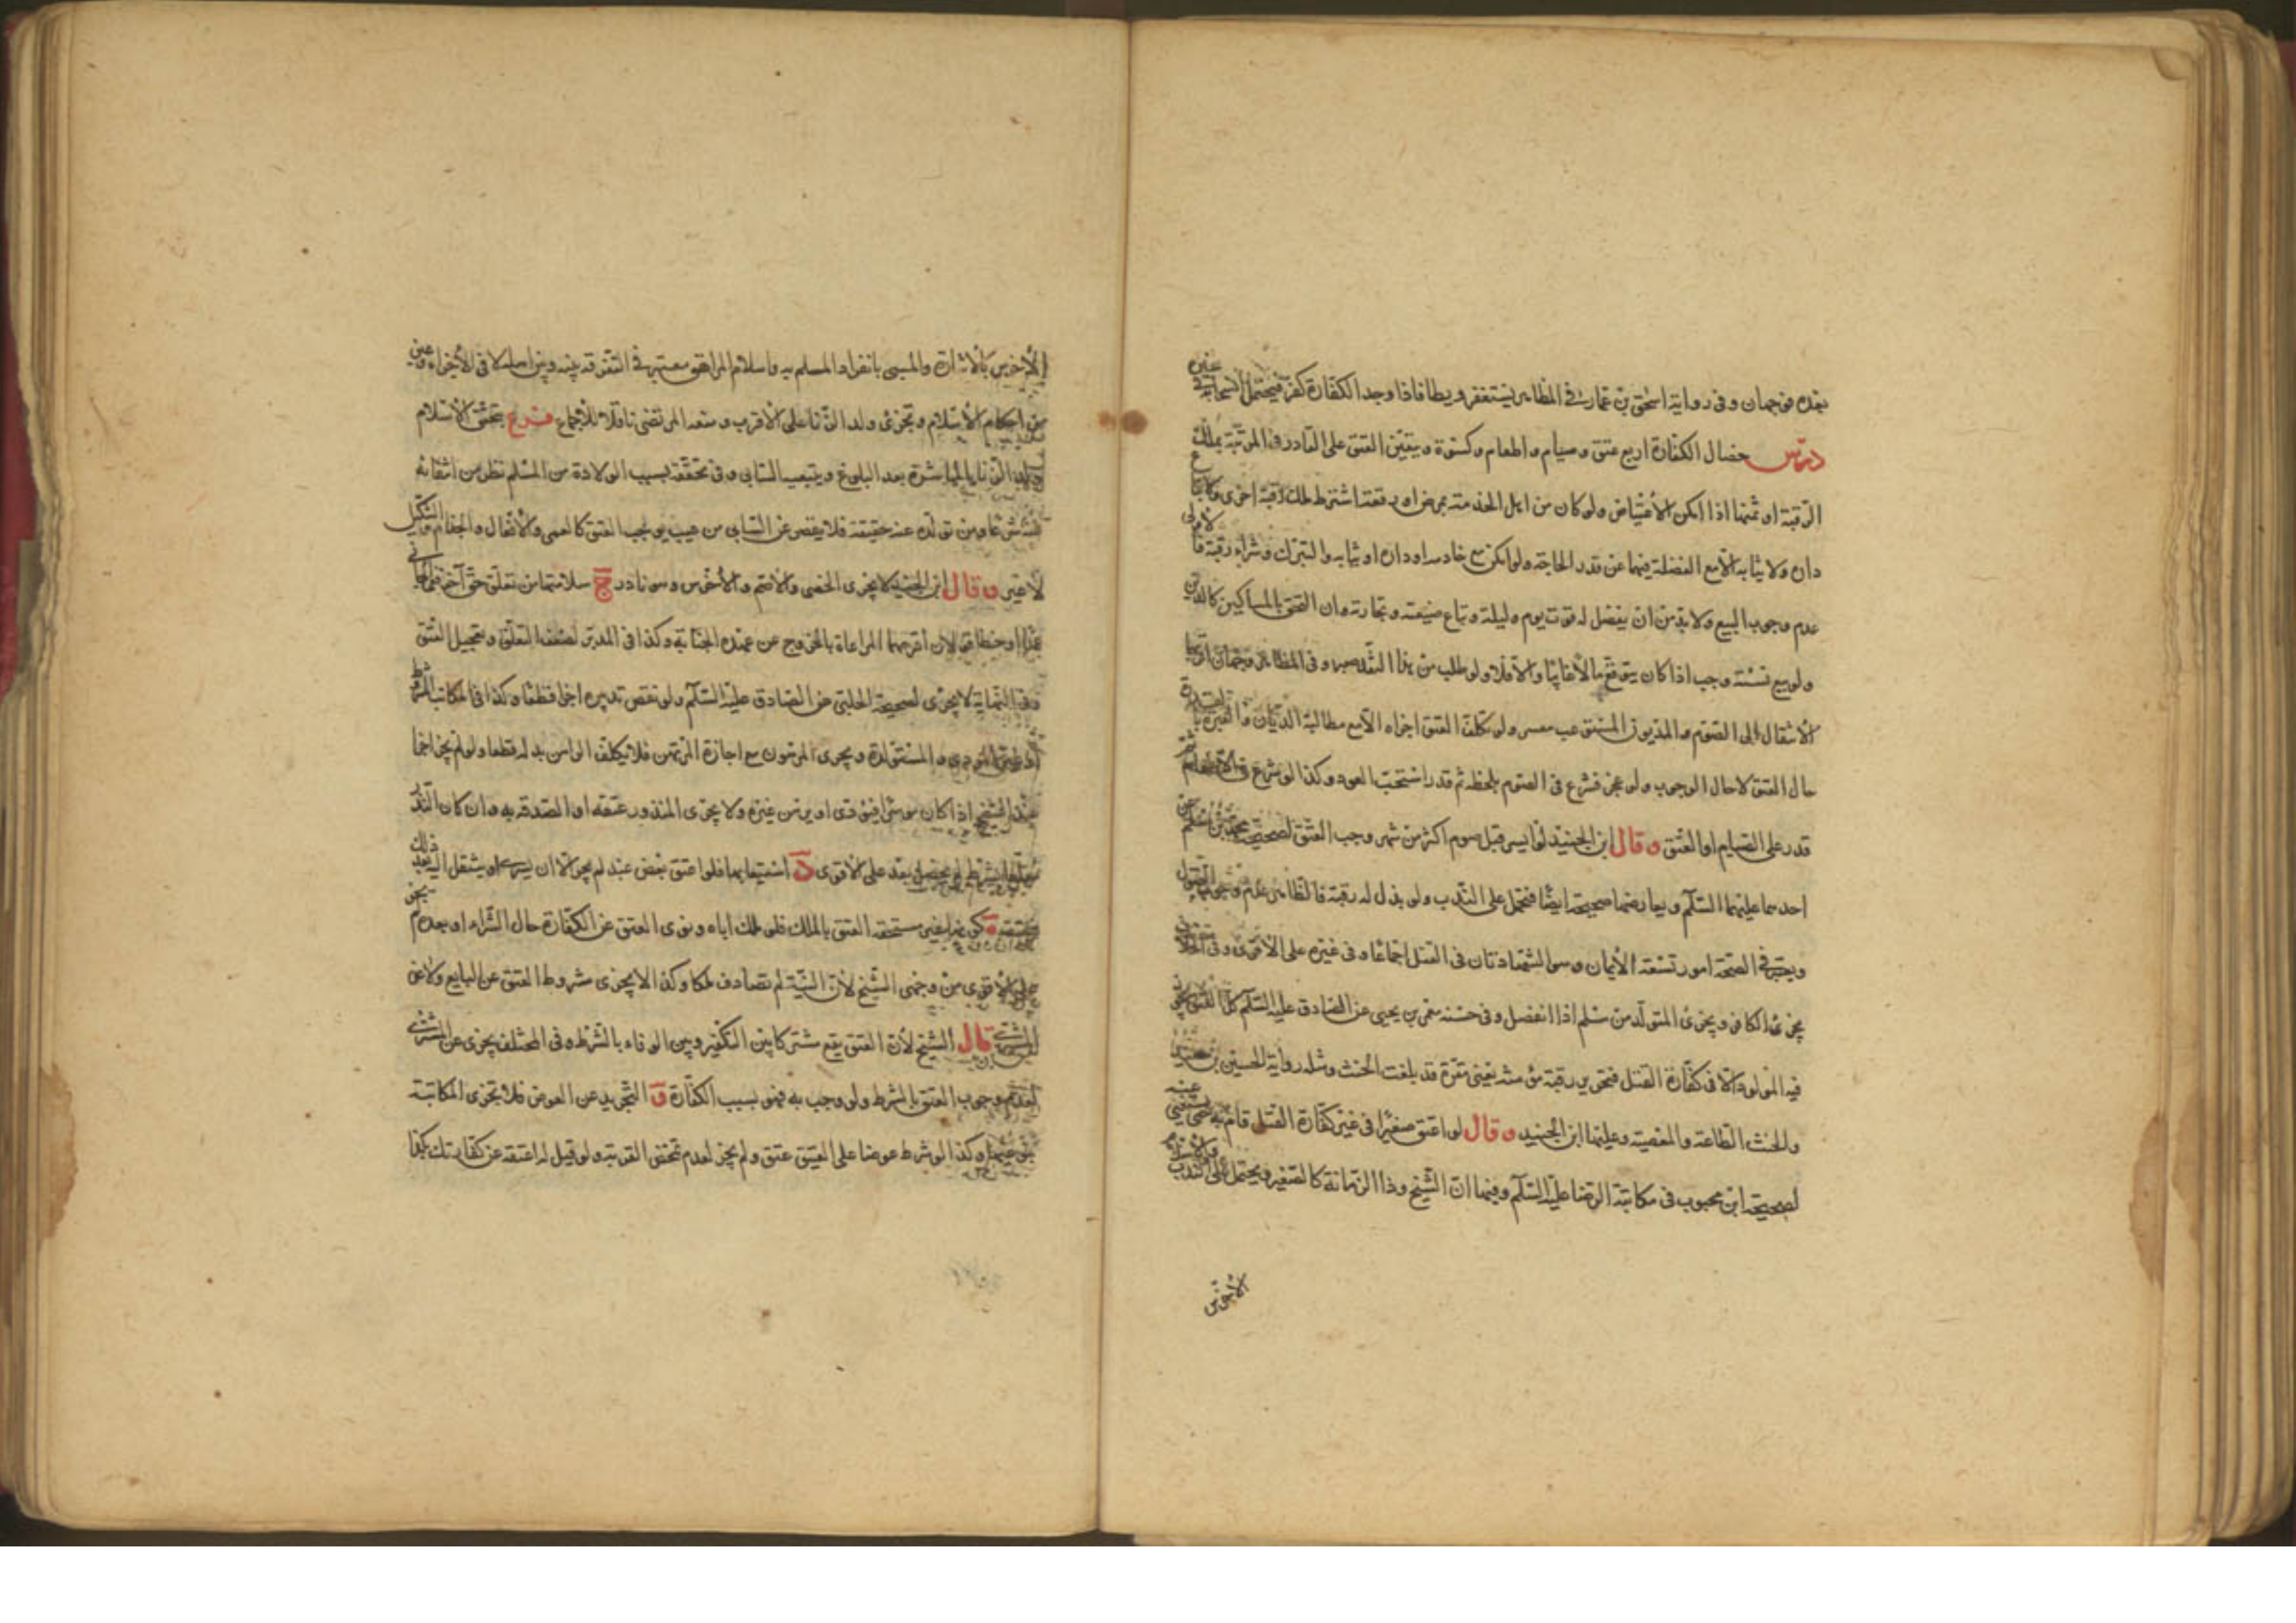 بعده فوجهان وفى رواية اسحق بن عمار فى المظاهر يستغفر ويطأ فاذا وجد الكفارة كفر فيحتمل انسحابه فى غيره
درس خصال الكفارة اربع عتق وصيام واطعام وكسوة ويتعين العتق على القادر فى المرتبة بملك
الرقبة او ثمنها اذا امكن الابتياع ولو كان من اهل الخدمة بمرض او رفعة اشترط ملك رقبة اخرى ولا تباع
داره ولا ثيابه الا مع الفضلة فيهما عن قدر الحاجة ولو امكن بيع خادمه او داره او ثيابه والشراء رقبة فالاولى
عدم وجوب البيع ولا بد من ان يفضل له قوت يوم وليلة وتباع ضيعته وتجارته وان التحق بالمساكين كالدين
ولو بيع نسئة وجب اذا كان يتوقع مالا فايتا والا فلا ولو طلب منه وفى المظاهر وجهان اقربها
الانتقال الى الصوم والمديون المستوعب معسر ولو تكلف العتق اجزاء الا مع مطالبة الديان والعبرة بالقدرة
حال العتق لا حال الوجوب ولو عجز فشرع فى الصوم بلحظة ثم قدر استحب العود وكذا لو شرع فى الاطعام ثم
قدر على الصيام او العتق وقال ابن الجنيد لو ايسر قبل صوم اكثر من شهر وجب العتق لصحيحة محمد بن مسلم عن
احدهما عليهما السلام ويعارضها صحيحة ايضا فتحمل على الندب ولو بذل له رقبة فالظاهر عدم وجوب القبول
ويعتبر فى الصحة امور تسعة الايمان وهو الشهادتان فى القتل اجماعا وفى غيره على الاقوى وفى الخلاف
يجزئ الكافر ويجزئ المتولد من مسلم اذا انفصل وفى حسنة معمر بن يحيى عن الصادق عليه السلام كل العتق يجوز
فيه المولود الا فى كفارة القتل فتحرير رقبة مؤمنة يعنى مقرة قد بلغت الحنث ومثله رواية الحسين بن سعيد
والحنث الطاعة والمعصية وعليهما ابن الجنيد وقال لو اعتق صغيرا فى غير كفارة القتل قام به حتى يستغنى عنه
لصحيحة ابن محبوب فى مكاتبة الرضا عليه السلام وفيها ان الشيخ وذا الزمانة كالصغير ويحتمل على الندب
الاخرس
الاخرس بالاشارة والمسبى بانفراد المسلم به واسلام المراهق معتبر فى التفرقة بينه وبين اهله لا فى الاجزاء وغيره
من احكام الاسلام وتجزئ ولد الزنا على الاقرب ومنعه المرتضى ناقلا للاجماع فرع يتحقق الاسلام
الزنا بالمباشرة بعد البلوغ وبتبعية السابى وفى تحققه بسبب الولادة من المسلم نظر من انتفائه
شرعا ومن تولده عنه حقيقة فلا يفضى عن السابى من عيب يوجب العتق كالعمى والاقعاد والجذام والتنكيل
لا غير وقال ابن الجنيد لا يجزى الخصى والاصم والاخرس وهو نادر ج سلامتها من تعلق حق آخر
عمدا وخطا قولان اقربهما المراعاة بالخروج عن عهدة الجناية وكذا فى المدبر لضعف التعلق وتعجيل العتق
وفى النهاية لا يجزى لصحيحة الحلبى عن الصادق عليه السلام ولو نقض تدبيره اجزا قطعا وكذا فى المكاتب المشروط
والمستولدة ويجزى المرهون مع اجازة المرتهن فلا يكلف الراهن بدله قطعا ولو لم يجز اجزا
عند الشيخ اذا كان موسرا فيؤدى او يرهن غيره ولا يجزى المنذور عتقه او الصدقة به وان كان النذر
معلقا بشرط لم يحصل بعد على الاقوى د استيعابها فلو اعتق بعض عبد لم يجز الا ان يسرى او ينتقل اليه بعد ذلك
كونه غير مستحقة العتق بالملك فلو ملك اباه ونوى العتق عن الكفارة حال الشراء او بعده لم يجز
على الاقوى من وجهى الشيخ لان النية لم تصادف ملكا وكذا لا يجزى مشروط العتق عن البايع ولا عن
المشترى قال الشيخ لان العتق يقع مشتركا بين التكفير وبين الوفاء بالشرط وفى المختلف يجزى عن المشترى
لعدم وجوب العتق بالشرط ولو وجب به فهو بسبب الكفارة و التجريد عن العوض فلا تجزى المكاتبة
وكذا لو شرط عوضا على العتيق عتق ولم يجز لعدم تمحض القربة ولو قيل له اعتقه عن كفارتك بكذا